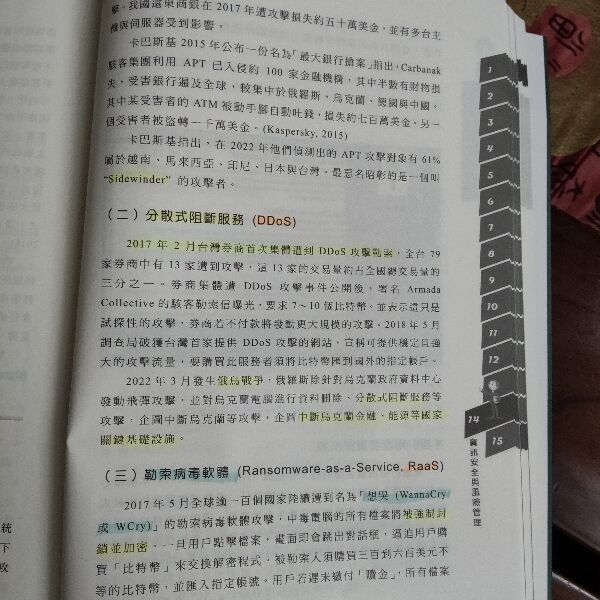 擊。我國遠東商銀在 2017 年遭攻擊損失約五十萬美金,並有多台主
機與伺服器受到影響。
卡巴斯基 2015 年公布一份名為「最大銀行搶案」指出,Carbanak
駭客集團利用 APT 已入侵約 100 家金融機構,其中半數有財物損
失。受害銀行遍及全球,較集中於俄羅斯、烏克蘭、德國與中國。
其中某受害者的 ATM 被動手腳自動吐錢,損失約七百萬美金。另一
個受害者被盜轉一千萬美金。(Kaspersky, 2015)
卡巴斯基指出,在 2022 年他們偵測出的 APT 攻擊對象有 61%
屬於越南、馬來西亞、印尼、日本與台灣。最惡名昭彰的是一個叫
“Sidewinder” 的攻擊者。
(二)分散式阻斷服務 (DDoS)
2017 年 2 月台灣券商首次集體遭到 DDoS 攻擊勒索,全台 79
家券商中有 13 家遭到攻擊,這 13 家的交易量約占全國總交易量的
三分之一。券商集體遭 DDoS 攻擊事件公開後,署名 Armada
Collective 的駭客勒索信曝光,要求 7~10 個比特幣。並表示這只是
試探性的攻擊,券商若不付款將發動更大規模的攻擊。2018 年 5 月
調查局破獲台灣首家提供 DDoS 攻擊的網站,宣稱可提供穩定且強
大的攻擊流量,要購買此服務者須將比特幣匯到國外的指定帳戶。
2022 年 3 月發生俄烏戰爭,俄羅斯除針對烏克蘭政府資料中心
發動飛彈攻擊,並對烏克蘭電腦進行資料刪除、分散式阻斷服務等
攻擊,企圖中斷烏克蘭等攻擊,企圖中斷烏克蘭金融、能源等國家
關鍵基礎設施。
(三)勒索病毒軟體 (Ransomware-as-a-Service, RaaS)
2017 年 5 月全球逾一百個國家陸續遭到名為「想哭 (WannaCry
或 WCry)」的勒索病毒軟體攻擊,中毒電腦的所有檔案將被強制封
鎖並加密,一旦用戶點擊檔案,畫面即會跳出對話框,逼迫用戶購
買「比特幣」來交換解密程式。被勒索人須購買三百到六百美元不
等的比特幣,並匯入指定帳號。用戶若遲未繳付「贖金」,所有檔案
1
2
3
4
5
6
7
8
9
10
11
12
14
15
資訊安全與風險管理
統
下
攻